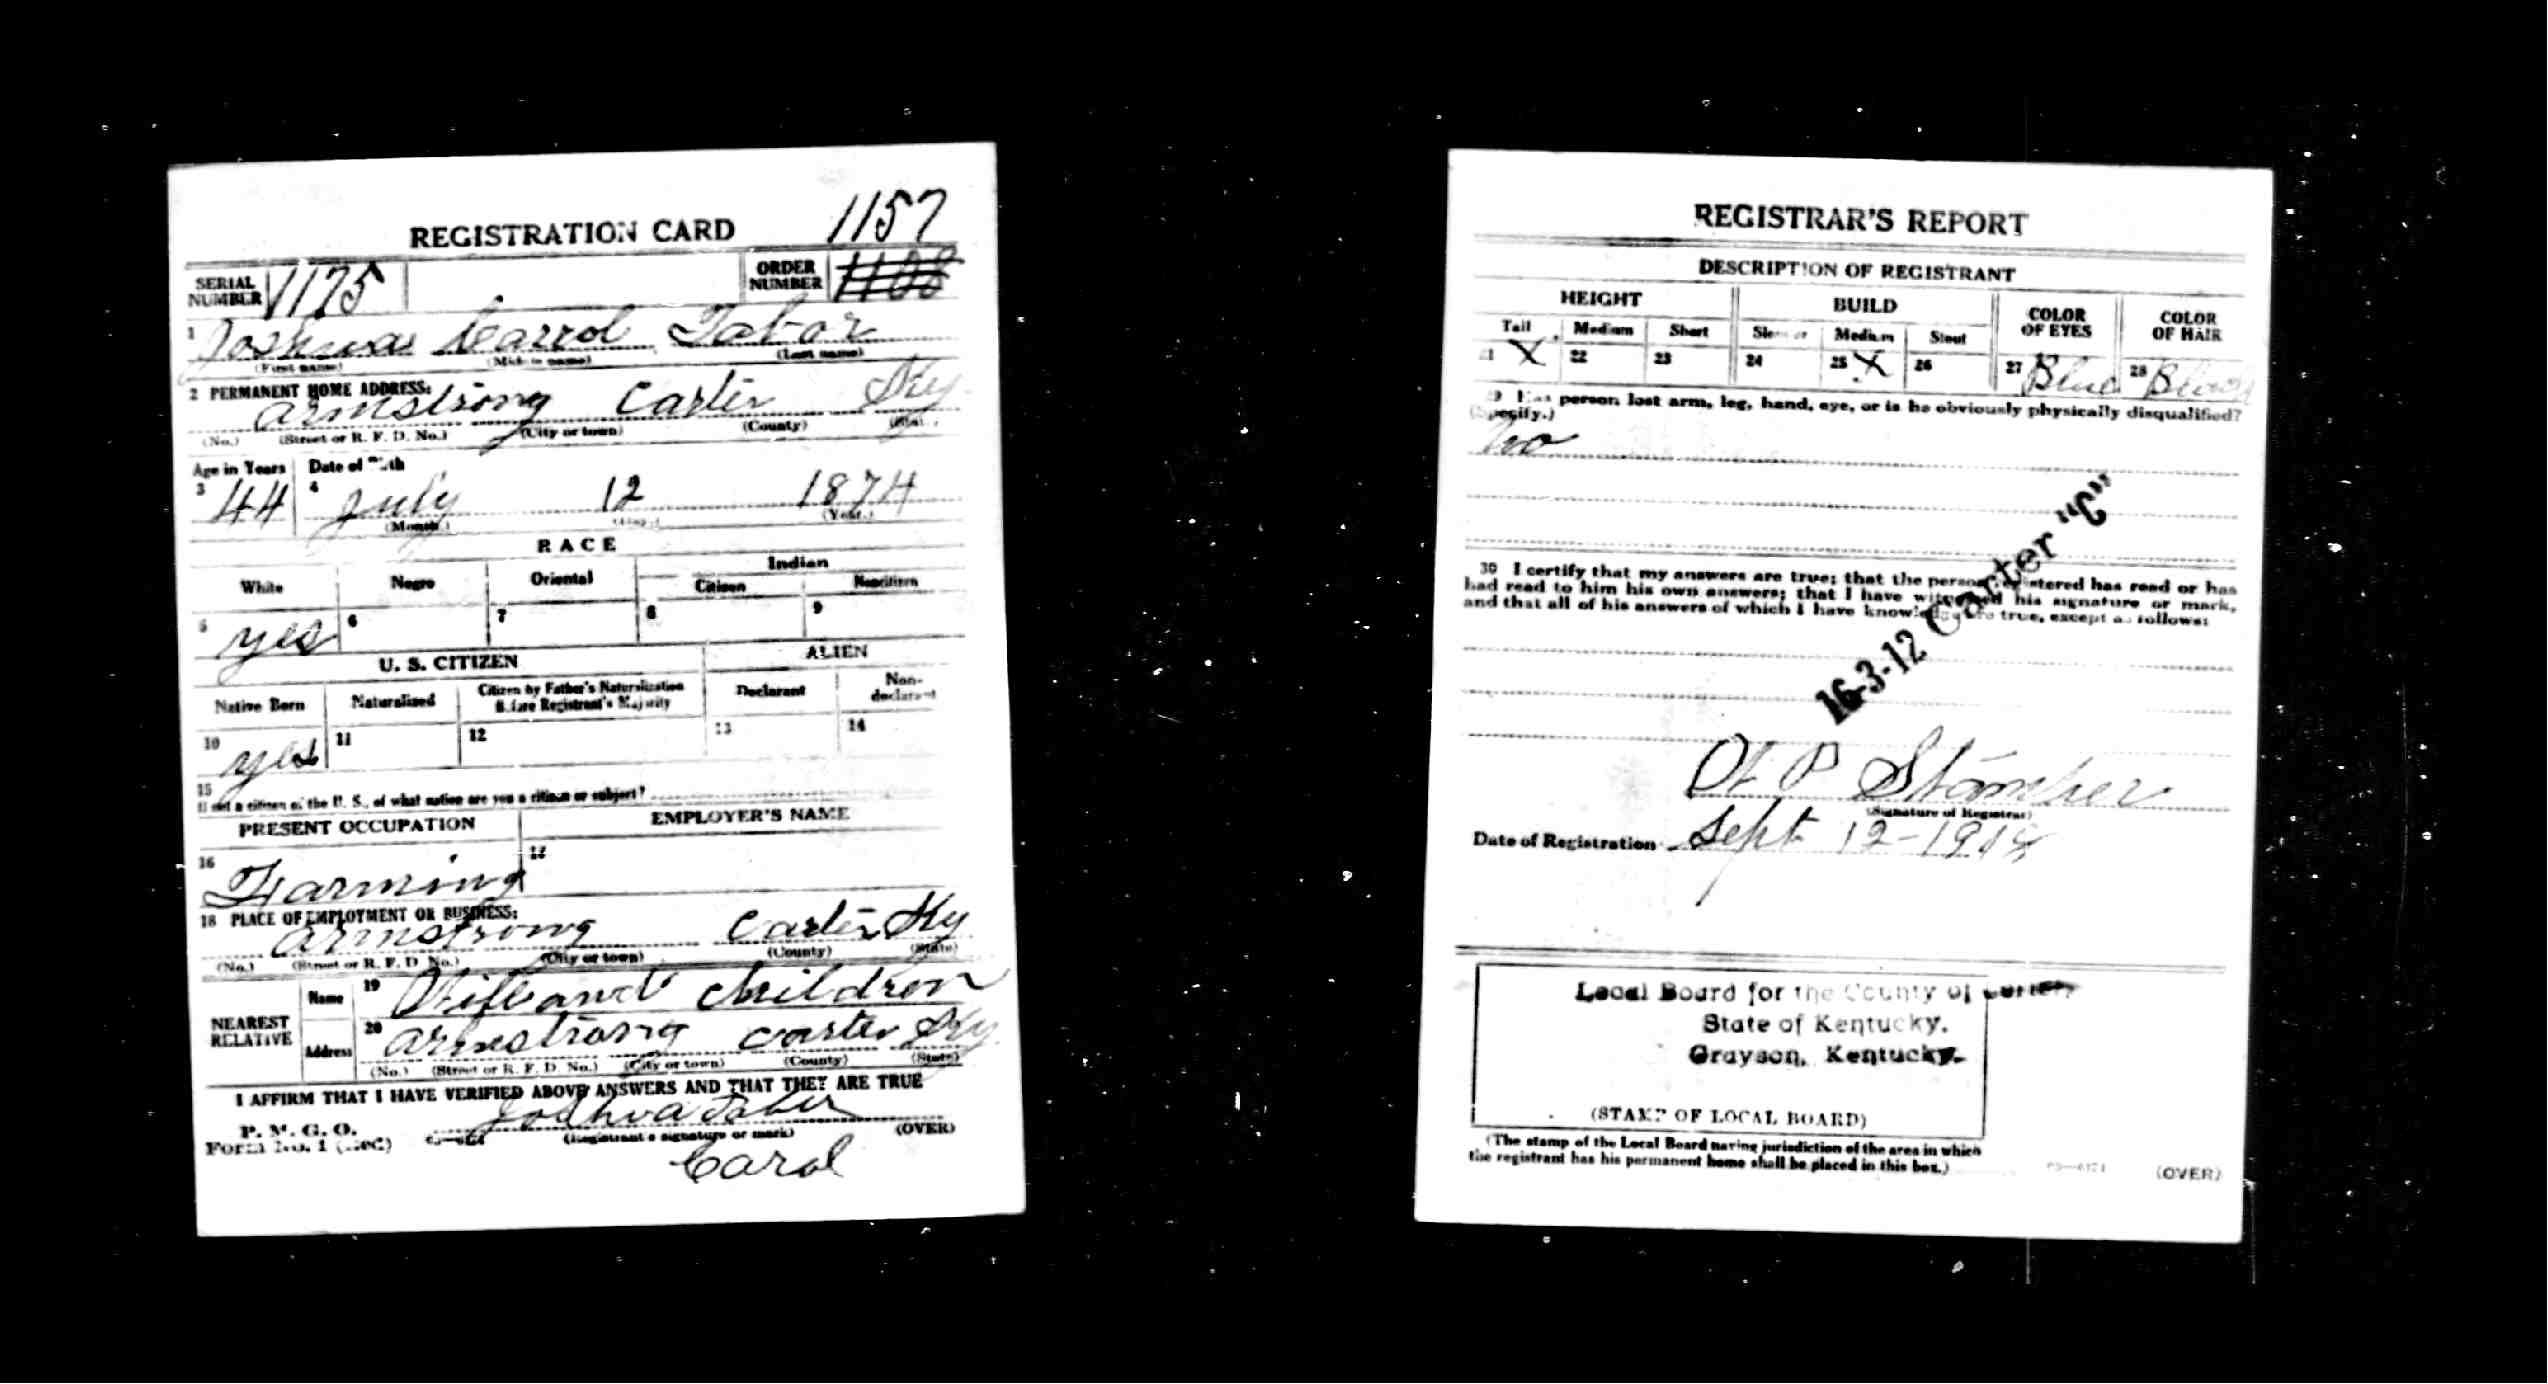 1157
REGISTRATION CARD
SERIAL NUMBER 1175 ORDER NUMBER
1 Joshua Carrol Tabor
(First name) (Middle name) (Last name)
2 PERMANENT HOME ADDRESS:
Armstrong Carter Ky
(No.) (Street or R. F. D. No.) (City or town) (County) (State)
Age in Years Date of Birth
3 44 4 July 12 1874
(Month.) (Day.) (Year.)
RACE
White Negro Oriental Indian
Citizen Noncitizen
5 yes 6 7 8 9
U. S. CITIZEN ALIEN
Native Born Naturalized Citizen by Father's Naturalization Before Registrant's Majority Declarant Non-declarant
10 yes 11 12 13 14
15
If not a citizen of the U. S., of what nation are you a citizen or subject?
PRESENT OCCUPATION EMPLOYER'S NAME
16 Farming 17
18 PLACE OF EMPLOYMENT OR BUSINESS:
Armstrong Carter Ky
(No.) (Street or R. F. D. No.) (City or town) (County) (State)
NEAREST RELATIVE
Name 19 Wife and Children
Address 20 Armstrong Carter Ky
(No.) (Street or R. F. D. No.) (City or town) (County) (State)
I AFFIRM THAT I HAVE VERIFIED ABOVE ANSWERS AND THAT THEY ARE TRUE
P. M. G. O.
Form No. 1 (Red) Joshua Tabor
(Registrant's signature or mark) (OVER)
Carol
REGISTRAR'S REPORT
DESCRIPTION OF REGISTRANT
HEIGHT BUILD COLOR OF EYES COLOR OF HAIR
Tall Medium Short Slender Medium Stout
21 X 22 23 24 25 X 26 27 Blue 28 Black
29 Has person lost arm, leg, hand, eye, or is he obviously physically disqualified?
(Specify.)
No
30 I certify that my answers are true; that the person registered has read or has
had read to him his own answers; that I have witnessed his signature or mark,
and that all of his answers of which I have knowledge are true, except as follows:
16-3-12 Carter "C"
P Stamper
(Signature of Registrar)
Date of Registration Sept 12-1918
Local Board for the County of Carter,
State of Kentucky.
Grayson, Kentucky.
(STAMP OF LOCAL BOARD)
(The stamp of the Local Board having jurisdiction of the area in which
the registrant has his permanent home shall be placed in this box.)
(OVER)